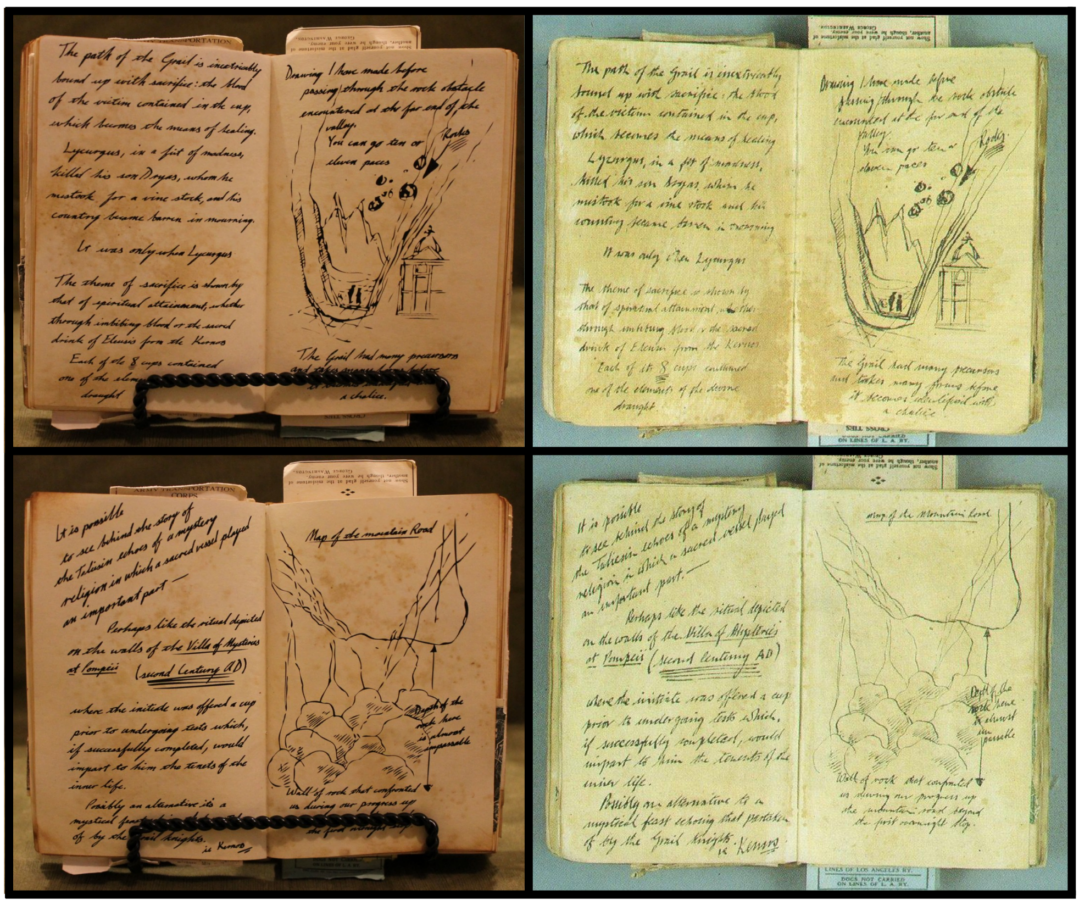 The path of the Grail is inextricably
bound up with sacrifice: the blood
of the victim contained in the cup,
which becomes the means of healing.
Lycurgus, in a fit of madness,
killed his son Dryas, whom he
mistook for a vine stock, and his
country became barren in mourning.
It was only when Lycurgus
The theme of sacrifice is shown by
that of spiritual attainment, whether
through imbibing blood or the sacred
drink of Eleusis from the Kernos
Each of the 8 cups contained
one of the
draught
Show not yourself glad at the misfortune of
another, though he were your enemy.
George Washington.
Drawing I have made before
passing through the rock obstacle
encountered at the far end of the
valley.
You can go ten or
eleven paces
Rocks
The Grail had many precursors
and takes many forms before
a chalice.
Show not yourself glad at the misfortune of
another, though he were your enemy.
George Washington.
The path of the Grail is inextricably
bound up with sacrifice: the blood
of the victim contained in the cup,
which becomes the means of healing
Lycurgus, in a fit of madness,
killed his son Dryas, whom he
mistook for a vine stock and his
country became barren in mourning
It was only when Lycurgus
The theme of sacrifice is shown by
that of spiritual attainment, whether
through imbibing blood or the sacred
drink of Eleusis from the Kernos
Each of its 8 cups contained
one of the elements of the divine
draught
Drawing I have made before
passing through the rock obstacle
encountered at the far end of the
valley.
You can go ten or
eleven paces
Rocks
The Grail had many precursors
and takes many forms before
it becomes identified with
a chalice
CROSS TIES
DOES NOT CARRIED
ON LINES OF L. A. RY.
ARMY TRANSPORTATION
CORPS
It is possible
to see behind the story of
the Taliesin echoes of a mystery
religion in which a sacred vessel played
an important part —
Perhaps like the ritual depicted
on the walls of the Villa of Mysteries
at Pompeii (second Century AD)
where the initiate was offered a cup
prior to undergoing tests which,
if successfully completed, would
impart to him the tenets of the
inner life.
Possibly an alternative to a
mystical
of by the Grail Knights.
is Kernos
Show not yourself glad at the misfortune of
another, though he were your enemy.
George Washington.
Map of the mountain Road
Depth of the
rock here
is almost
impassable
Wall of rock that confronted
us during our progress up
It is possible
to see behind the story of
the Taliesin echoes of a mystery
religion in which a sacred vessel played
an important part. —
Perhaps like the ritual depicted
on the walls of the Villa of Mysteries
at Pompeii (second Century AD)
where the initiate was offered a cup
prior to undergoing tests which,
if successfully completed, would
impart to him the tenets of the
inner life.
Possibly an alternative to a
mystical feast echoing that partaken
of by the Grail Knights.
is Kernos
Map of the Mountain Road
Depth of the
rock here
is almost
impassible
Wall of rock that confronted
us during our progress up
the mountain road beyond
the first overnight stop.
LINES OF LOS ANGELES RY.
DOES NOT CARRIED
ON LINES OF L. A. RY.